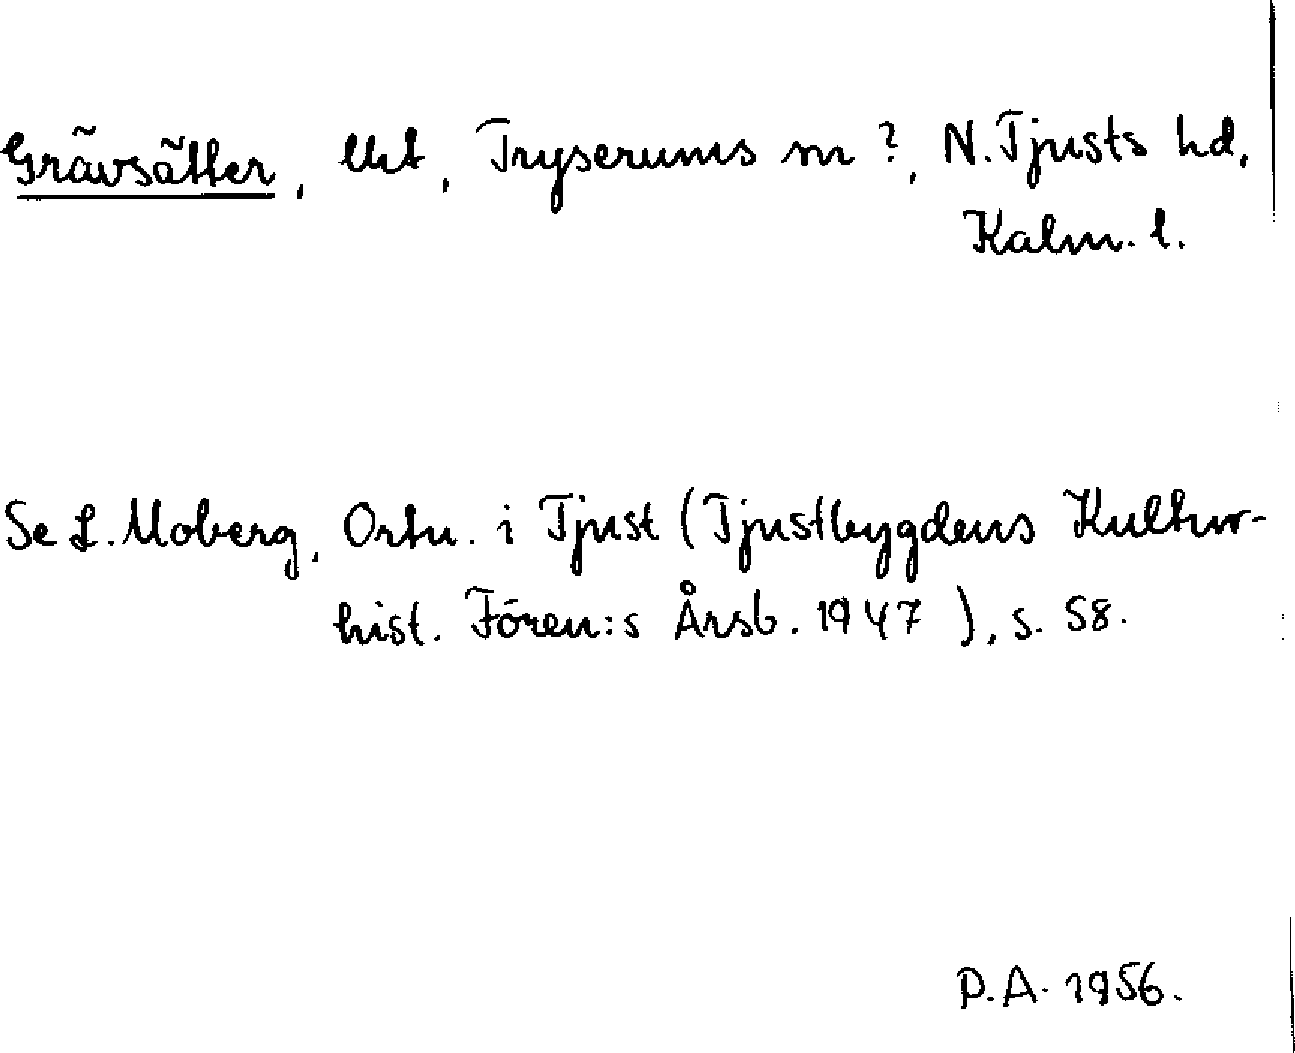 Grävsätter, Ukt, Tryserums sn?, N. Tjusts hd,
Kalm. l.
Se L. Moberg, Ortn. i Tjust (Tjustbygdens Kultur-
hist. Fören:s Årsb. 1947), s. 58.
P.A. 1956.